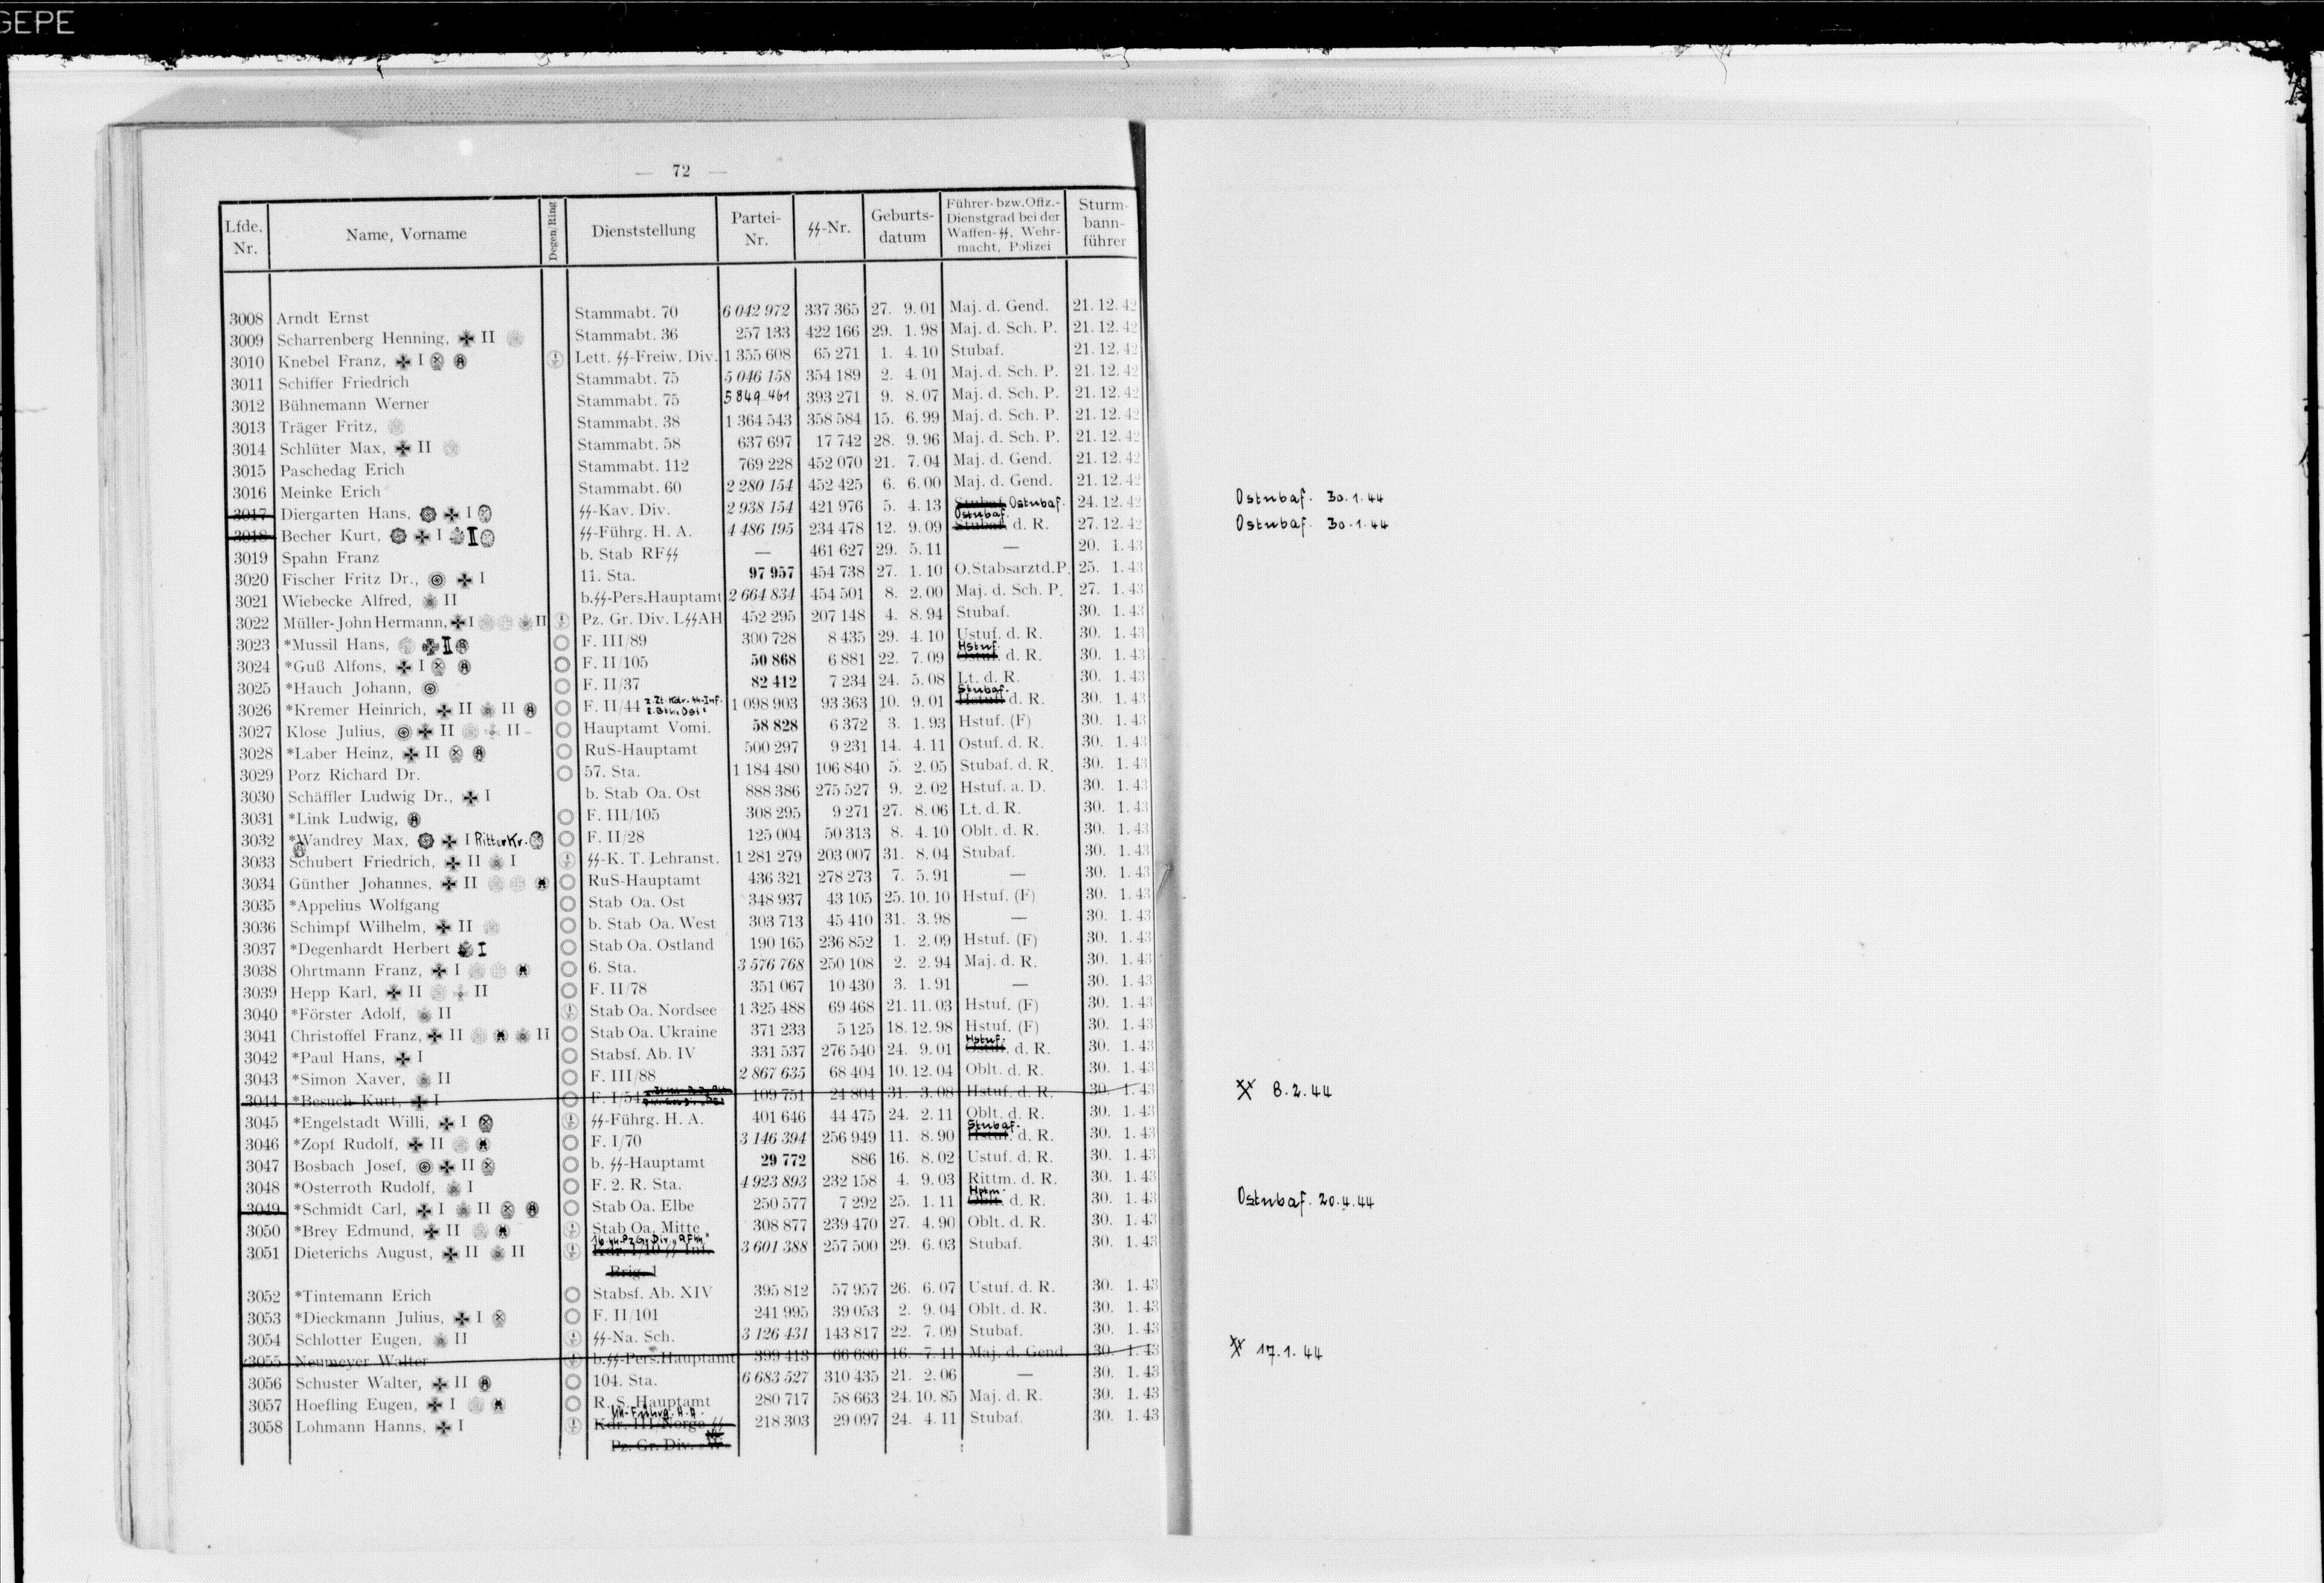 GEPE
— 72 —
Lfde. Nr. | Name, Vorname | Degen/Ring | Dienststellung | Partei-Nr. | ᛋᛋ-Nr. | Geburtsdatum | Führer- bzw. Offz.-Dienstgrad bei der Waffen-ᛋᛋ, Wehrmacht, Polizei | Sturmbannführer
3008 Arndt Ernst Stammabt. 70 6 042 972 337 365 27. 9. 01 Maj. d. Gend. 21. 12. 42
3009 Scharrenberg Henning, ✠ II Stammabt. 36 257 133 422 166 29. 1. 98 Maj. d. Sch. P. 21. 12. 42
3010 Knebel Franz, ✠ I Lett. ᛋᛋ-Freiw. Div. 1 355 608 65 271 1. 4. 10 Stubaf. 21. 12. 42
3011 Schiffer Friedrich Stammabt. 75 5 046 158 354 189 2. 4. 01 Maj. d. Sch. P. 21. 12. 42
3012 Bühnemann Werner Stammabt. 75 5 849 461 393 271 9. 8. 07 Maj. d. Sch. P. 21. 12. 42
3013 Träger Fritz, Stammabt. 38 1 364 543 358 584 15. 6. 99 Maj. d. Sch. P. 21. 12. 42
3014 Schlüter Max, ✠ II Stammabt. 58 637 697 17 742 28. 9. 96 Maj. d. Sch. P. 21. 12. 42
3015 Paschedag Erich Stammabt. 112 769 228 452 070 21. 7. 04 Maj. d. Gend. 21. 12. 42
3016 Meinke Erich Stammabt. 60 2 280 154 452 425 6. 6. 00 Maj. d. Gend. 21. 12. 42
3017 Diergarten Hans, ✠ I ᛋᛋ-Kav. Div. 2 938 154 421 976 5. 4. 13 Stubaf. Ostubaf. 24. 12. 42 Ostubaf. 30. 1. 44
3018 Becher Kurt, ✠ I II ᛋᛋ-Führg. H. A. 4 486 195 234 478 12. 9. 09 Ostubaf. Stubaf. d. R. 27. 12. 42 Ostubaf. 30. 1. 44
3019 Spahn Franz b. Stab RFᛋᛋ — 461 627 29. 5. 11 — 20. 1. 43
3020 Fischer Fritz Dr., ✠ I 11. Sta. 97 957 454 738 27. 1. 10 O.Stabsarzt d. P. 25. 1. 43
3021 Wiebecke Alfred, II b. ᛋᛋ-Pers. Hauptamt 2 664 834 454 501 8. 2. 00 Maj. d. Sch. P. 27. 1. 43
3022 Müller-John Hermann, ✠ I II Pz. Gr. Div. LᛋᛋAH 452 295 207 148 4. 8. 94 Stubaf. 30. 1. 43
3023 *Mussil Hans, II F. III/89 300 728 8 435 29. 4. 10 Ustuf. d. R. 30. 1. 43
3024 *Guß Alfons, ✠ I F. II/105 50 868 6 881 22. 7. 09 Hstuf. Ostuf. d. R. 30. 1. 43
3025 *Hauch Johann, F. II/37 82 412 7 234 24. 5. 08 Lt. d. R. 30. 1. 43
3026 *Kremer Heinrich, ✠ II II F. II/44 z. Zt. Kdr. 1 098 903 93 363 10. 9. 01 Stubaf. Hstuf. d. R. 30. 1. 43
3027 Klose Julius, ✠ II II Hauptamt Vomi. 58 828 6 372 3. 1. 93 Hstuf. (F) 30. 1. 43
3028 *Laber Heinz, ✠ II RuS-Hauptamt 500 297 9 231 14. 4. 11 Ostuf. d. R. 30. 1. 43
3029 Porz Richard Dr. 57. Sta. 1 184 480 106 840 5. 2. 05 Stubaf. d. R. 30. 1. 43
3030 Schäffler Ludwig Dr., ✠ I b. Stab Oa. Ost 888 386 275 527 9. 2. 02 Hstuf. a. D. 30. 1. 43
3031 *Link Ludwig, F. III/105 308 295 9 271 27. 8. 06 Lt. d. R. 30. 1. 43
3032 *Wandrey Max, ✠ I Ritterkr. F. II/28 125 004 50 313 8. 4. 10 Oblt. d. R. 30. 1. 43
3033 Schubert Friedrich, ✠ II I ᛋᛋ-K. T. Lehranst. 1 281 279 203 007 31. 8. 04 Stubaf. 30. 1. 43
3034 Günther Johannes, ✠ II RuS-Hauptamt 436 321 278 273 7. 5. 91 — 30. 1. 43
3035 *Appelius Wolfgang Stab Oa. Ost 348 937 43 105 25. 10. 10 Hstuf. (F) 30. 1. 43
3036 Schimpf Wilhelm, ✠ II b. Stab Oa. West 303 713 45 410 31. 3. 98 — 30. 1. 43
3037 *Degenhardt Herbert I Stab Oa. Ostland 190 165 236 852 1. 2. 09 Hstuf. (F) 30. 1. 43
3038 Ohrtmann Franz, ✠ I 6. Sta. 3 576 768 250 108 2. 2. 94 Maj. d. R. 30. 1. 43
3039 Hepp Karl, ✠ II II F. II/78 351 067 10 430 3. 1. 91 — 30. 1. 43
3040 *Förster Adolf, II Stab Oa. Nordsee 1 325 488 69 468 21. 11. 03 Hstuf. (F) 30. 1. 43
3041 Christoffel Franz, ✠ II II Stab Oa. Ukraine 371 233 5 125 18. 12. 98 Hstuf. (F) 30. 1. 43
3042 *Paul Hans, ✠ I Stabsf. Ab. IV 331 537 276 540 24. 9. 01 Hstuf. Ostuf. d. R. 30. 1. 43
3043 *Simon Xaver, II F. III/88 2 867 635 68 404 10. 12. 04 Oblt. d. R. 30. 1. 43
3044 *Besuch Kurt, ✠ I F. I/54 109 751 24 804 31. 3. 08 Hstuf. d. R. 30. 1. 43 8. 2. 44
3045 *Engelstadt Willi, ✠ I ᛋᛋ-Führg. H. A. 401 646 44 475 24. 2. 11 Oblt. d. R. 30. 1. 43
3046 *Zopf Rudolf, ✠ II F. I/70 3 146 394 256 949 11. 8. 90 Stubaf. Hstuf. d. R. 30. 1. 43
3047 Bosbach Josef, ✠ II b. ᛋᛋ-Hauptamt 29 772 886 16. 8. 02 Ustuf. d. R. 30. 1. 43
3048 *Osterroth Rudolf, I F. 2. R. Sta. 4 923 893 232 158 4. 9. 03 Rittm. d. R. 30. 1. 43
3049 *Schmidt Carl, ✠ I II Stab Oa. Elbe 250 577 7 292 25. 1. 11 Hptm. Oblt. d. R. 30. 1. 43 Ostubaf. 20. 4. 44
3050 *Brey Edmund, ✠ II Stab Oa. Mitte 308 877 239 470 27. 4. 90 Oblt. d. R. 30. 1. 43
3051 Dieterichs August, ✠ II II 16. ᛋᛋ-Pz Gr. Div. "RFᛋᛋ" 3 601 388 257 500 29. 6. 03 Stubaf. 30. 1. 43
Brig. 1
3052 *Tintemann Erich Stabsf. Ab. XIV 395 812 57 957 26. 6. 07 Ustuf. d. R. 30. 1. 43
3053 *Dieckmann Julius, ✠ I F. II/101 241 995 39 053 2. 9. 04 Oblt. d. R. 30. 1. 43
3054 Schlotter Eugen, II ᛋᛋ-Na. Sch. 3 126 431 143 817 22. 7. 09 Stubaf. 30. 1. 43
3055 Neumeyer Walter b. ᛋᛋ-Pers. Hauptamt 399 413 66 686 16. 7. 11 Maj. d. Gend. 30. 1. 43 17. 1. 44
3056 Schuster Walter, ✠ II 104. Sta. 6 683 527 310 435 21. 2. 06 — 30. 1. 43
3057 Hoefling Eugen, ✠ I R. S. Hauptamt 280 717 58 663 24. 10. 85 Maj. d. R. 30. 1. 43
3058 Lohmann Hanns, ✠ I ᛋᛋ-Führg. H. A. Kdr. III/Norge ᛋᛋ 218 303 29 097 24. 4. 11 Stubaf. 30. 1. 43
Pz. Gr. Div.